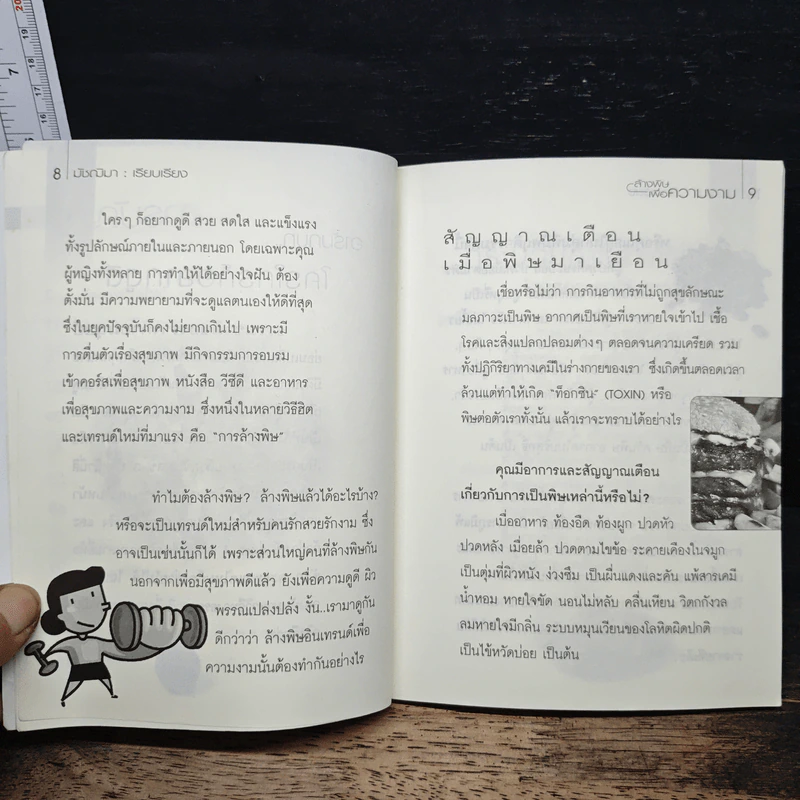 8 มัชฌิมา : เรียบเรียง
ใครๆ ก็อยากดูดี สวย สดใส และแข็งแรง
ทั้งรูปลักษณ์ภายในและภายนอก โดยเฉพาะคุณ
ผู้หญิงทั้งหลาย การทำให้ได้อย่างใจฝัน ต้อง
ตั้งมั่น มีความพยายามที่จะดูแลตนเองให้ดีที่สุด
ซึ่งในยุคปัจจุบันก็คงไม่ยากเกินไป เพราะมี
การตื่นตัวเรื่องสุขภาพ มีกิจกรรมการอบรม
เข้าคอร์สเพื่อสุขภาพ หนังสือ วีซีดี และอาหาร
เพื่อสุขภาพและความงาม ซึ่งหนึ่งในหลายวิธีฮิต
และเทรนด์ใหม่ที่มาแรง คือ "การล้างพิษ"
ทำไมต้องล้างพิษ? ล้างพิษแล้วได้อะไรบ้าง?
หรือจะเป็นเทรนด์ใหม่สำหรับคนรักสวยรักงาม ซึ่ง
อาจเป็นเช่นนั้นก็ได้ เพราะส่วนใหญ่คนที่ล้างพิษกัน
นอกจากเพื่อมีสุขภาพดีแล้ว ยังเพื่อความดูดี ผิว
พรรณเปล่งปลั่ง งั้น..เรามาดูกัน
ดีกว่าว่า ล้างพิษอินเทรนด์เพื่อ
ความงามนั้นต้องทำกันอย่างไร
ล้างพิษ
เพื่อความงาม 9
สัญญาณเตือน
เมื่อพิษมาเยือน
เชื่อหรือไม่ว่า การกินอาหารที่ไม่ถูกสุขลักษณะ
มลภาวะเป็นพิษ อากาศเป็นพิษที่เราหายใจเข้าไป เชื้อ
โรคและสิ่งแปลกปลอมต่างๆ ตลอดจนความเครียด รวม
ทั้งปฏิกิริยาทางเคมีในร่างกายของเรา ซึ่งเกิดขึ้นตลอดเวลา
ล้วนแต่ทำให้เกิด "ท็อกซิน" (TOXIN) หรือ
พิษต่อตัวเราทั้งนั้น แล้วเราจะทราบได้อย่างไร
คุณมีอาการและสัญญาณเตือน
เกี่ยวกับการเป็นพิษเหล่านี้หรือไม่?
เบื่ออาหาร ท้องอืด ท้องผูก ปวดหัว
ปวดหลัง เมื่อยล้า ปวดตามไขข้อ ระคายเคืองในจมูก
เป็นตุ่มที่ผิวหนัง ง่วงซึม เป็นผื่นแดงและคัน แพ้สารเคมี
น้ำหอม หายใจขัด นอนไม่หลับ คลื่นเหียน วิตกกังวล
ลมหายใจมีกลิ่น ระบบหมุนเวียนของโลหิตผิดปกติ
เป็นไข้หวัดบ่อย เป็นต้น
20
19
18
17
16
7